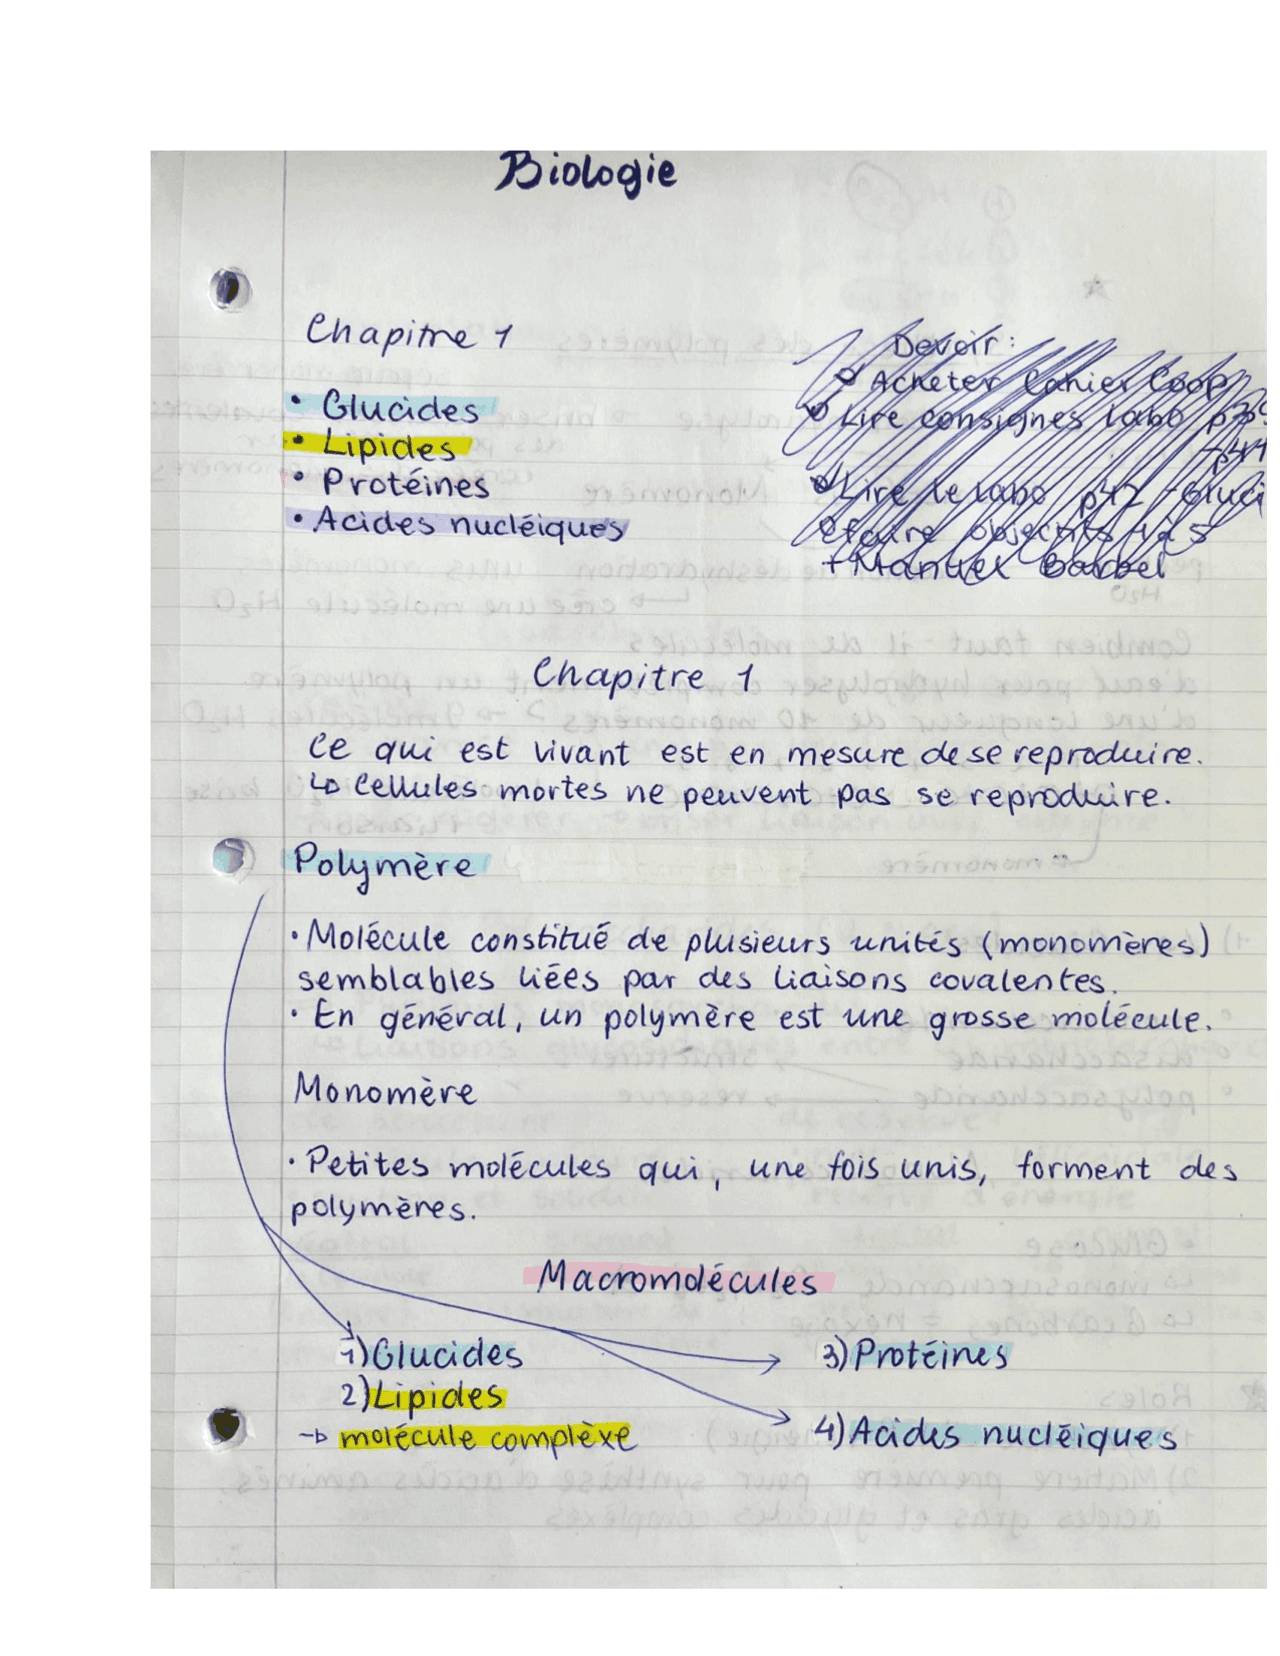 Biologie
Chapitre 1
• Glucides
• Lipides
• Protéines
• Acides nucléiques
Devoir :
Acheter Cahier Coop
Lire consignes labo
Lire le labo p42
faire objectifs
+ Manuel
Chapitre 1
Ce qui est vivant est en mesure de se reproduire.
↳ Cellules mortes ne peuvent pas se reproduire.
Polymère
• Molécule constitué de plusieurs unités (monomères)
semblables liées par des liaisons covalentes.
• En général, un polymère est une grosse molécule.
Monomère
• Petites molécules qui, une fois unis, forment des
polymères.
Macromolécules
1) Glucides
2) Lipides
→ molécule complèxe
3) Protéines
4) Acides nucléiques